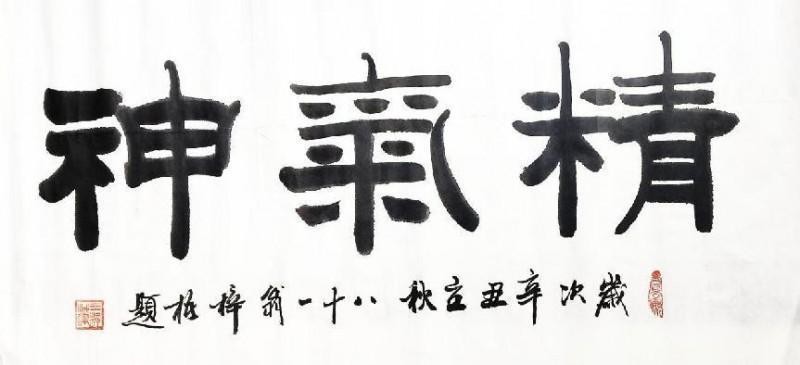 精氣神
歲次辛丑立秋八十一翁梓栢題